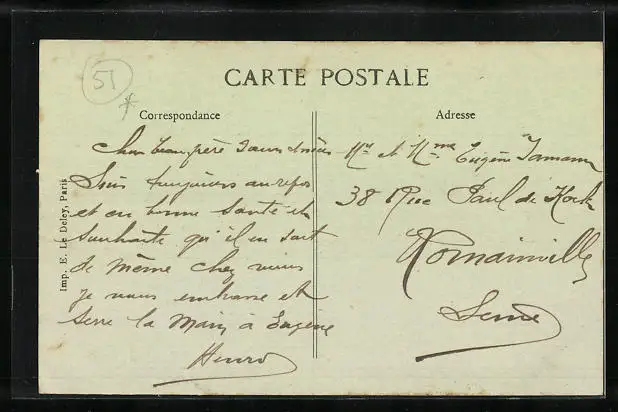 51
CARTE POSTALE
Correspondance
Adresse
Imp. E. Le Deley, Paris
Cher beau père
Suis toujours au repos
et en bonne santé et
souhaite qu'il en soit
de même chez vous
je vous embrasse et
serre la main à Eugène
Henri
Mr et Mme Eugène
38 Rue Paul de Kock
Romainville
Seine